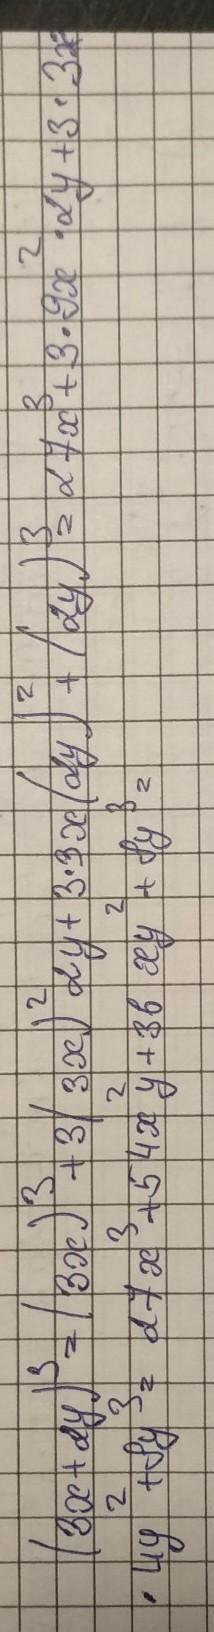 (3x+2y)³ = (3x)³ + 3(3x)² 2y + 3·3x(2y)² + (2y)³ = 27x³ + 3·9x² · 2y + 3·3x
· 4y² + 8y³ = 27x³ + 54x²y + 36xy² + 8y³ =